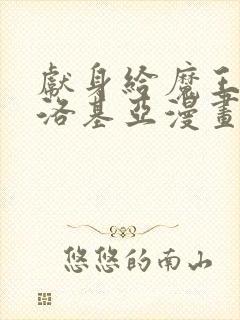 獻身給魔王
洛基亞漫畫
悠悠的南山